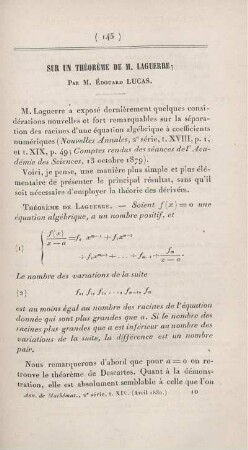 ( 145 )
SUR UN THÉORÈME DE M. LAGUERRE;
PAR M. ÉDOUARD LUCAS.
M. Laguerre a exposé dernièrement quelques considérations nouvelles et fort remarquables sur la séparation
des racines d'une équation algébrique à coefficients
numériques (Nouvelles Annales, 2e série, t. XVIII, p. 1,
et t. XIX, p. 49; Comptes rendus des séances de l'Académie des Sciences, 13 octobre 1879).
Voici, je pense, une manière plus simple et plus élémentaire
de présenter le principal résultat, sans qu'il
soit nécessaire d'employer la théorie des dérivées.
THÉORÈME DE LAGUERRE. — Soient f(x) = 0 une
équation algébrique, a un nombre positif, et
(1) { f(x)/(x − a) = f₀ xᵐ⁻¹ + f₁ xᵐ⁻²
+ f₂ xᵐ⁻³ + ... + fₘ₋₁ + fₘ/(x − a).
Le nombre des variations de la suite
(2) f₀, f₁, f₂, ..., fₘ₋₁, fₘ
est au moins égal au nombre des racines de l'équation
donnée qui sont plus grandes que a. Si le nombre des
racines plus grandes que a est inférieur au nombre des
variations de la suite, la différence est un nombre
pair.
Nous remarquerons d'abord que pour a = 0 on retrouve
le théorème de Descartes. Quant à la démonstration,
elle est absolument semblable à celle que l'on
Ann. de Mathémat., 2e série, t. XIX. (Avril 1880.) 10